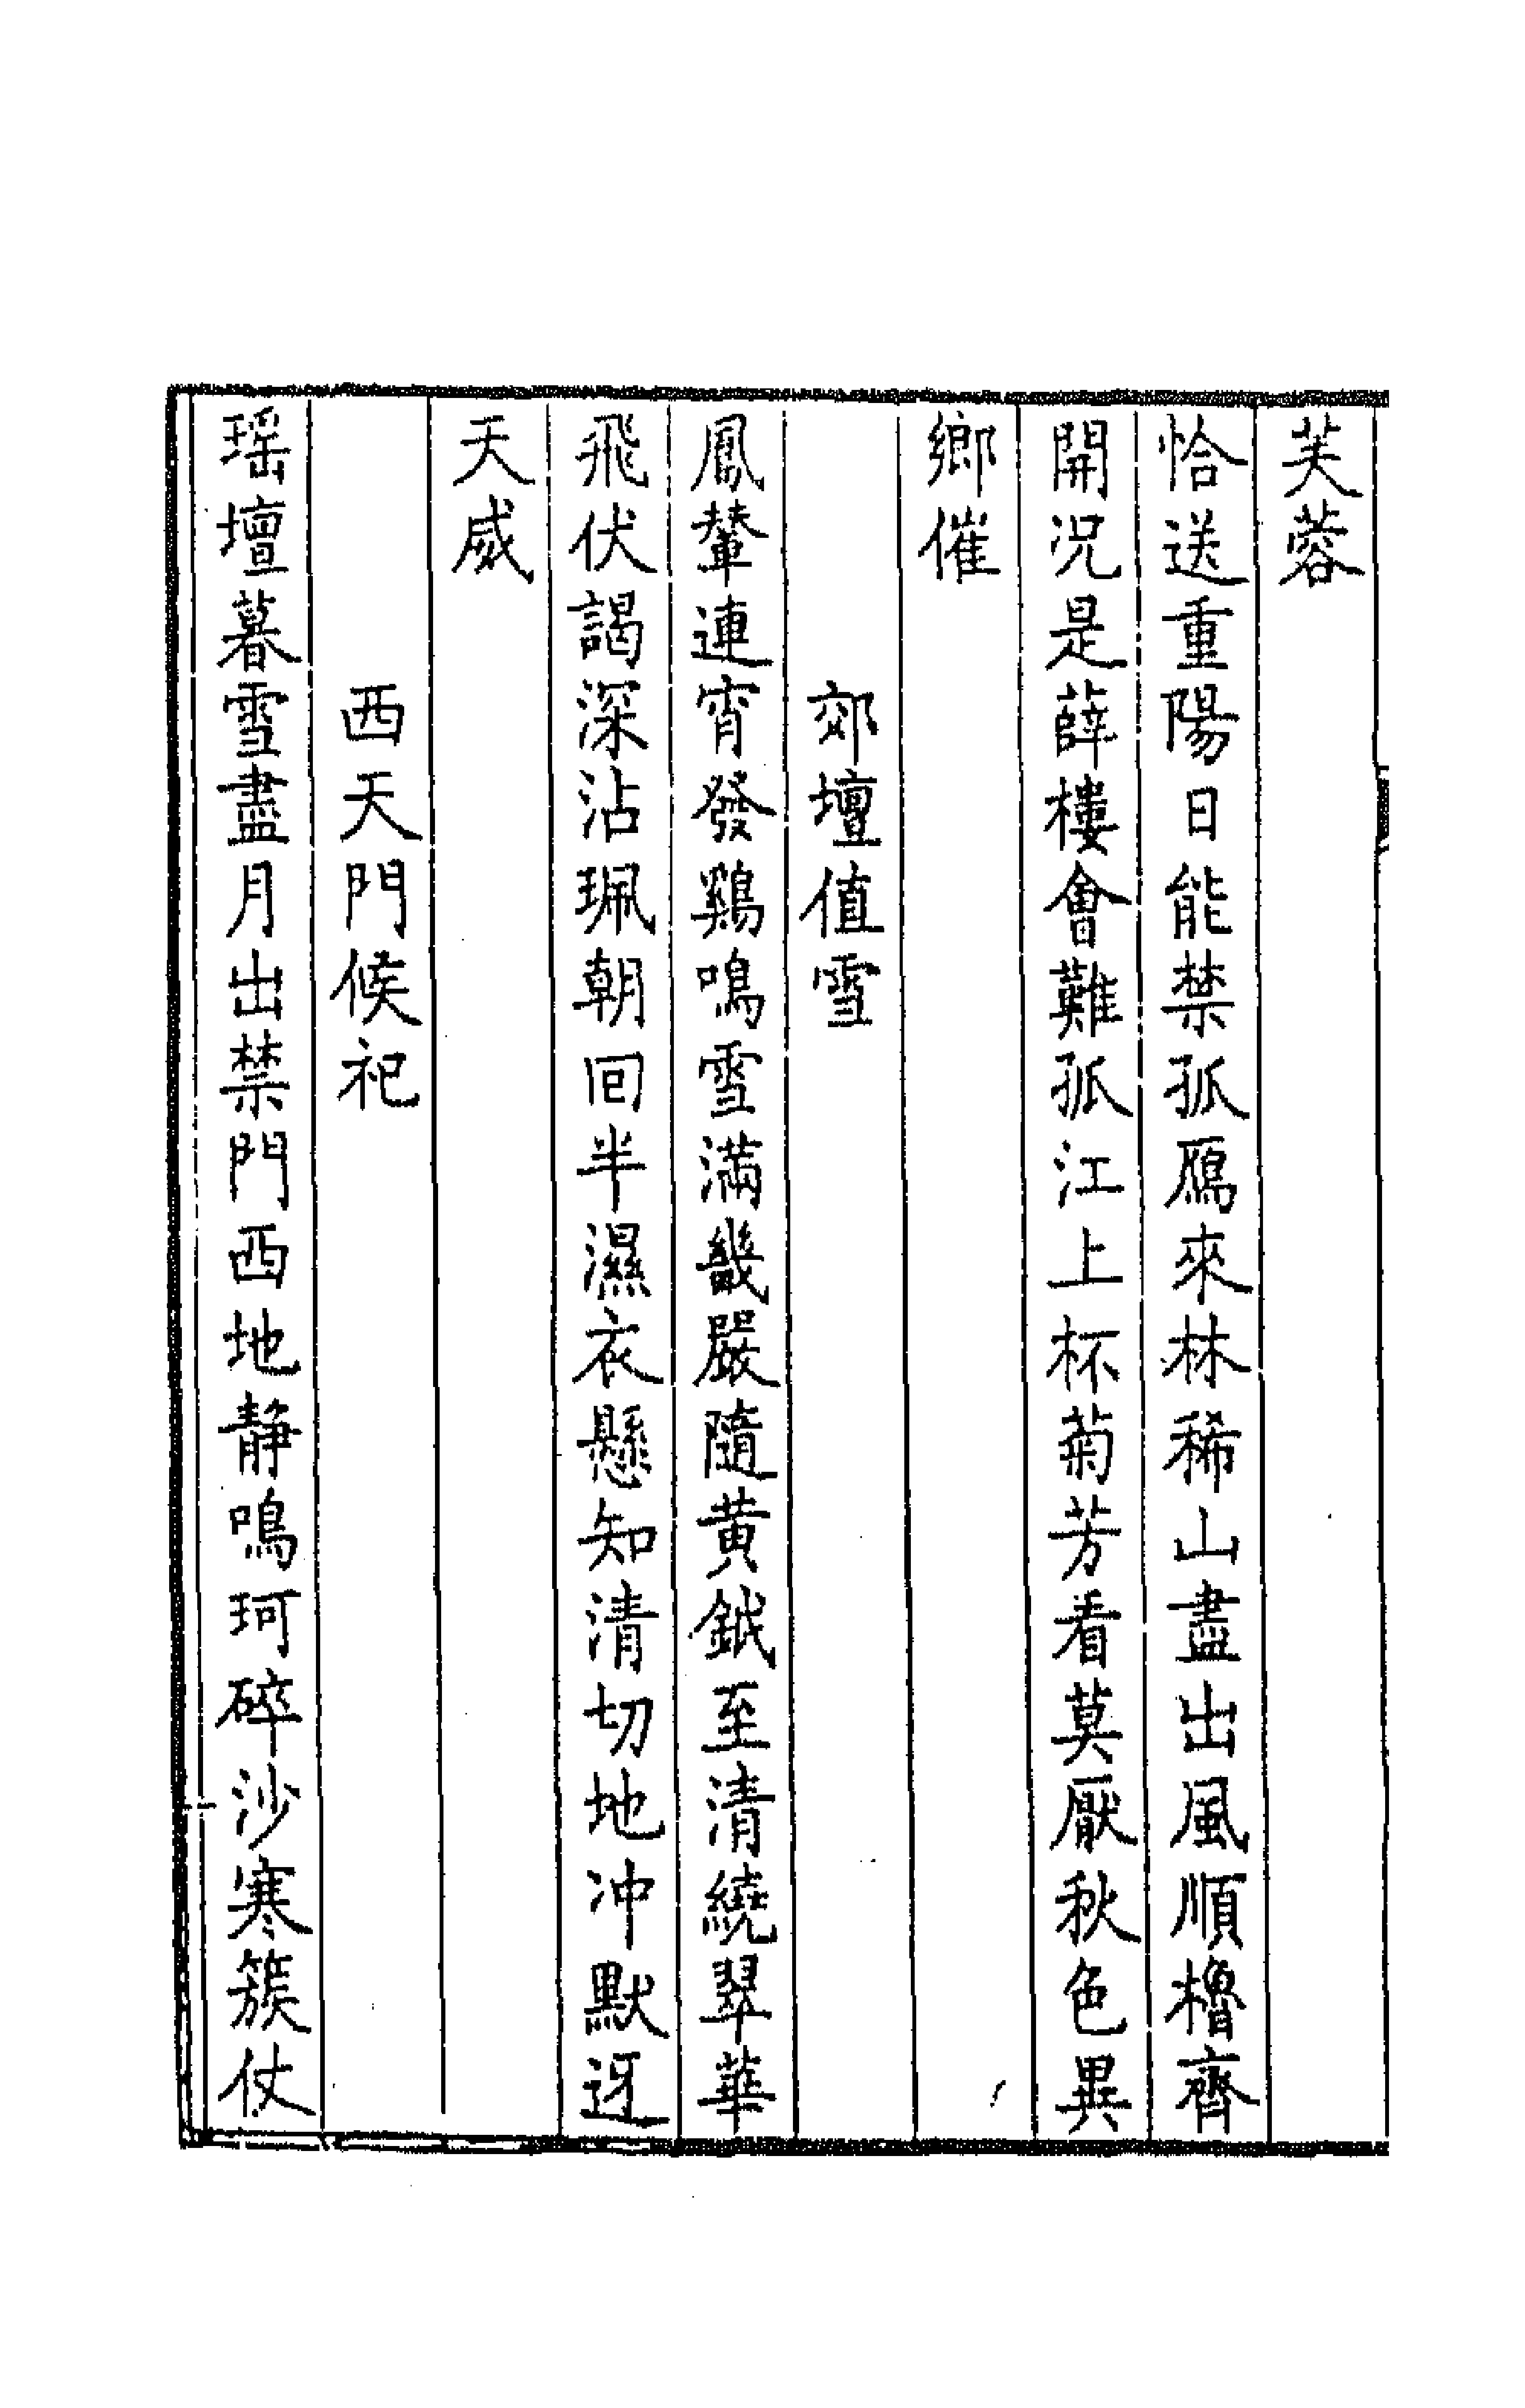 芙蓉
恰送重陽日能禁孤鴈來林稀山盡出風順櫓齊
開況是薛樓會難孤江上杯菊芳看莫厭秋色異
鄉催
郊壇值雪
鳳輦連宵發鷄鳴雪滿畿嚴隨黄鉞至清繞翠華
飛伏謁深沾珮朝回半濕衣懸知清切地冲默迓
天威
西天門候祀
瑶壇暮雪盡月出禁門西地静鳴珂碎沙寒簇仗